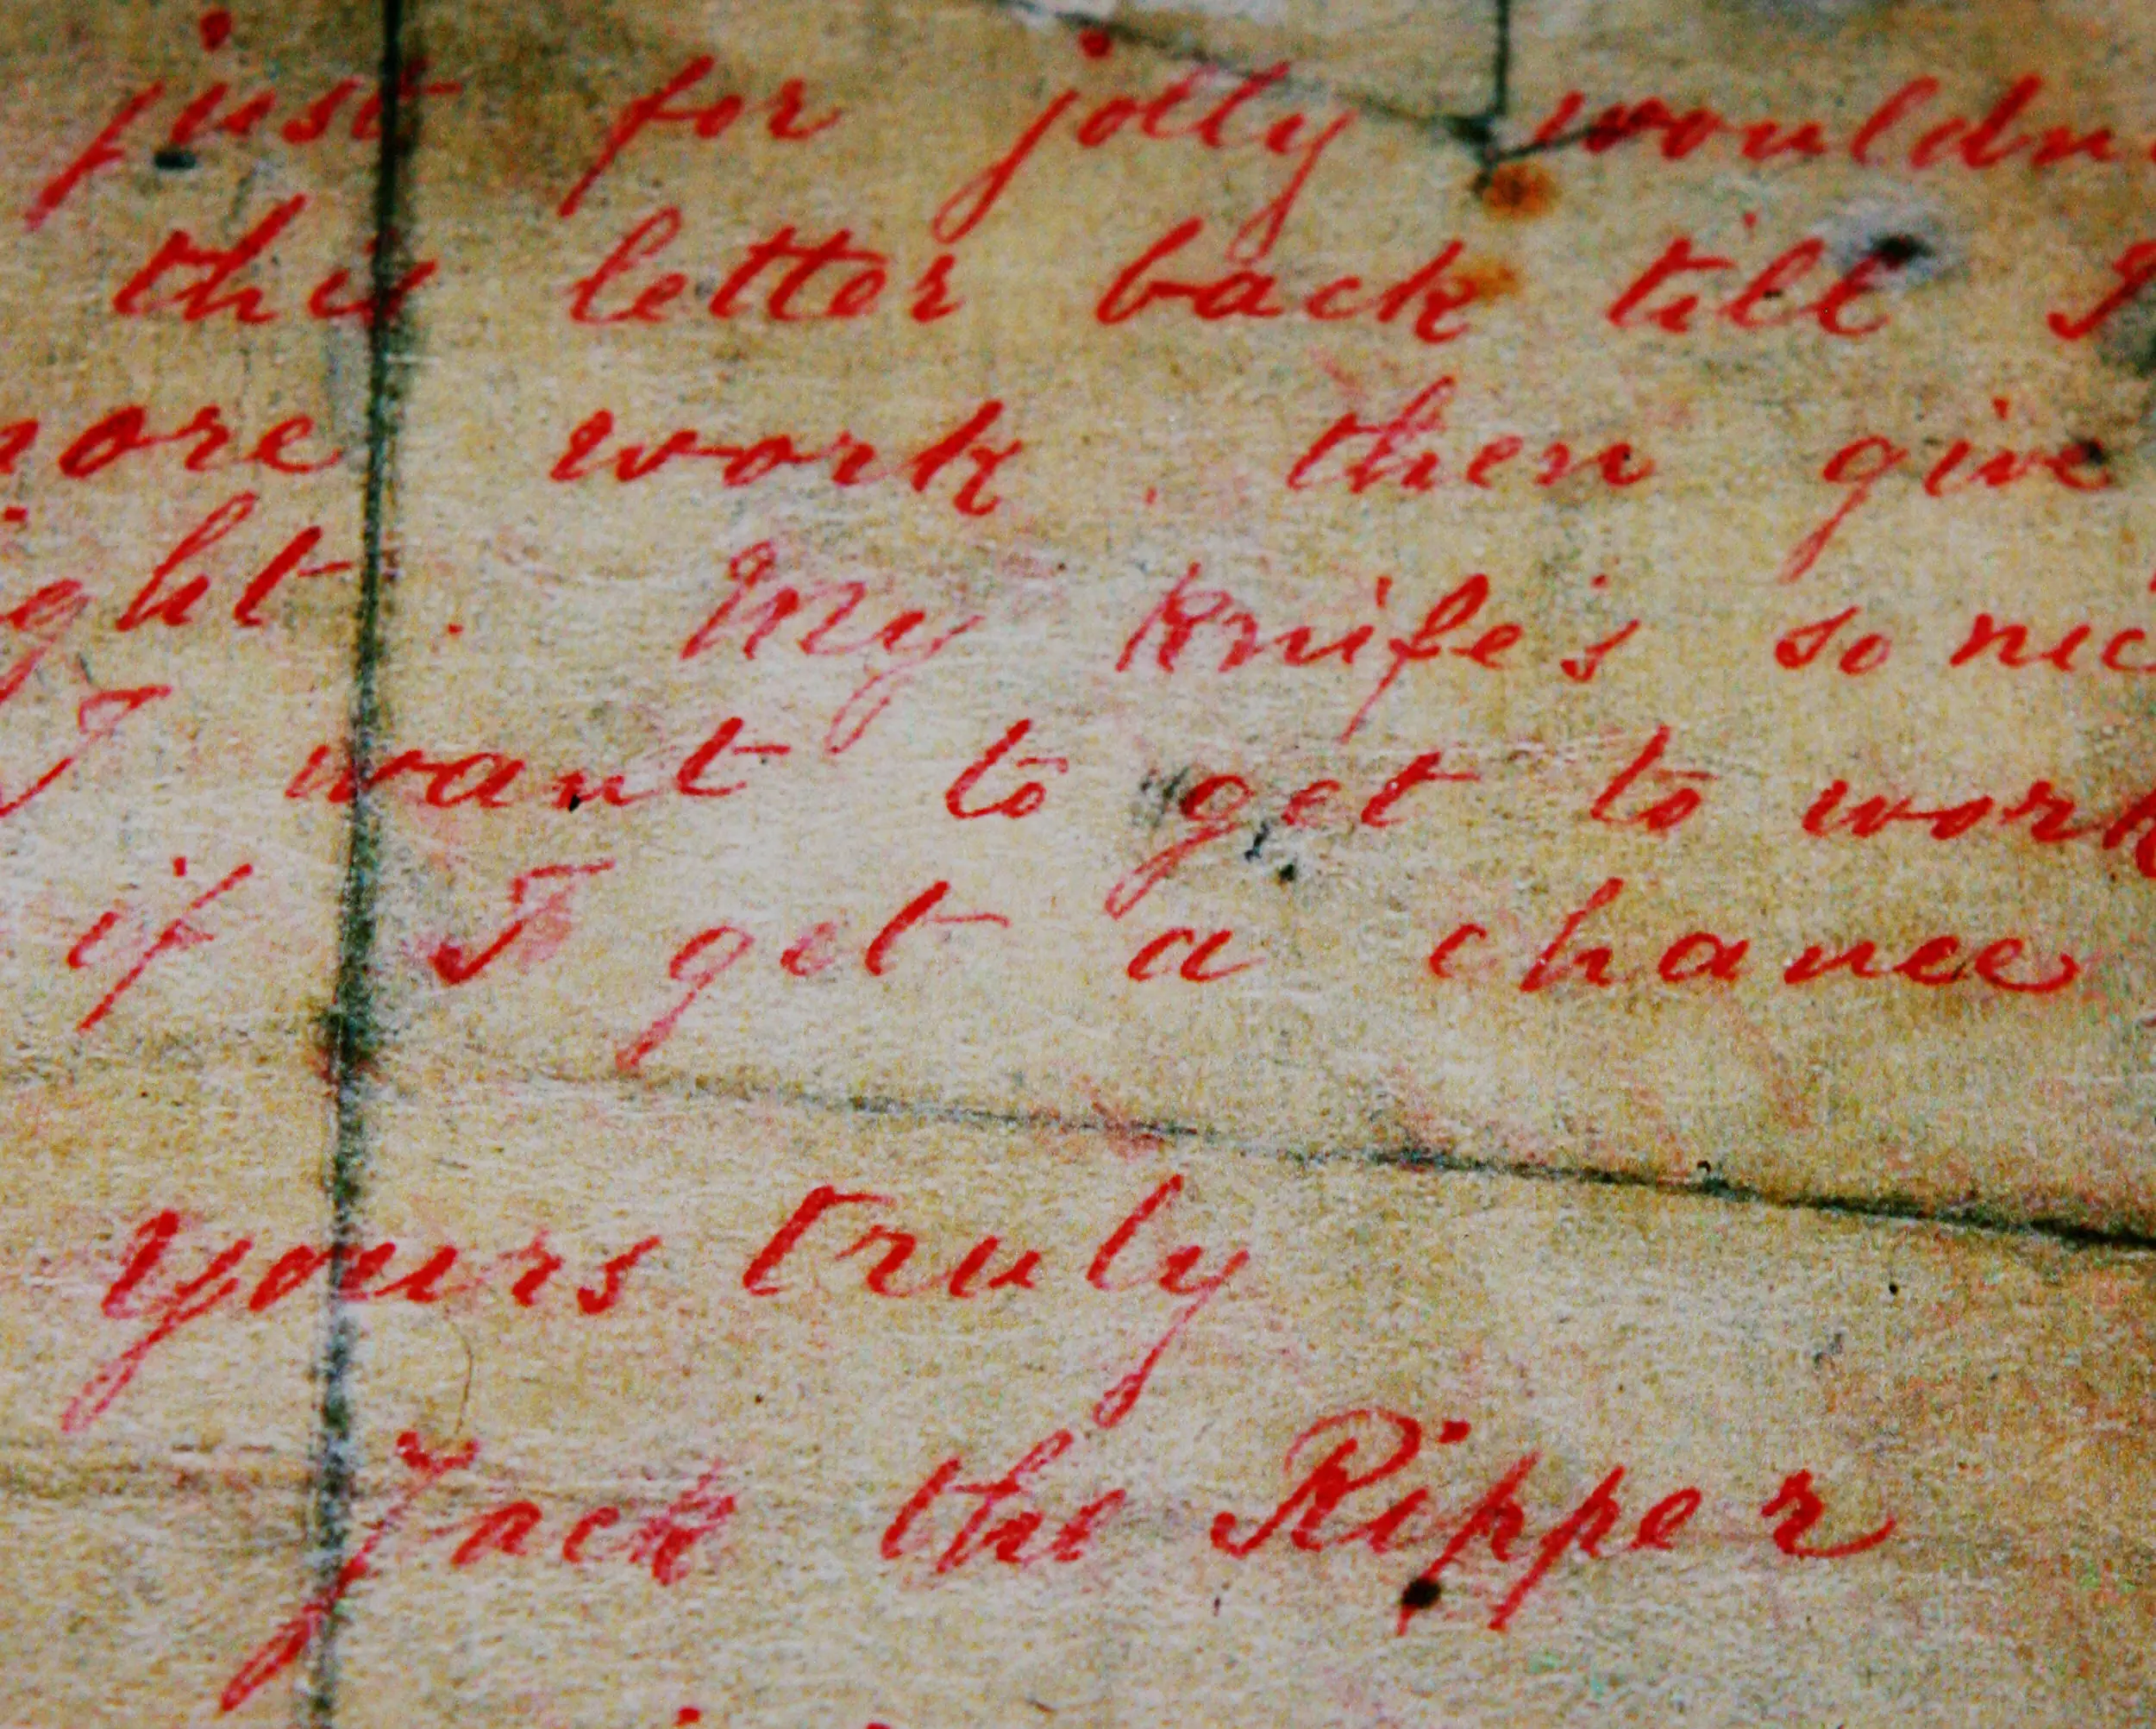 just for jolly wouldn
this letter back till I
more work. then give
ght. My knife's so nic
I want to get to work
if I get a chance
yours truly
Jack the Ripper